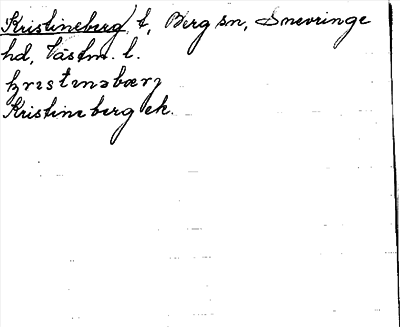 Kristineberg t, Berg sn, Snevringe
hd, Västm. l.
krɪstɪnəbærj
Kristineberg ek.